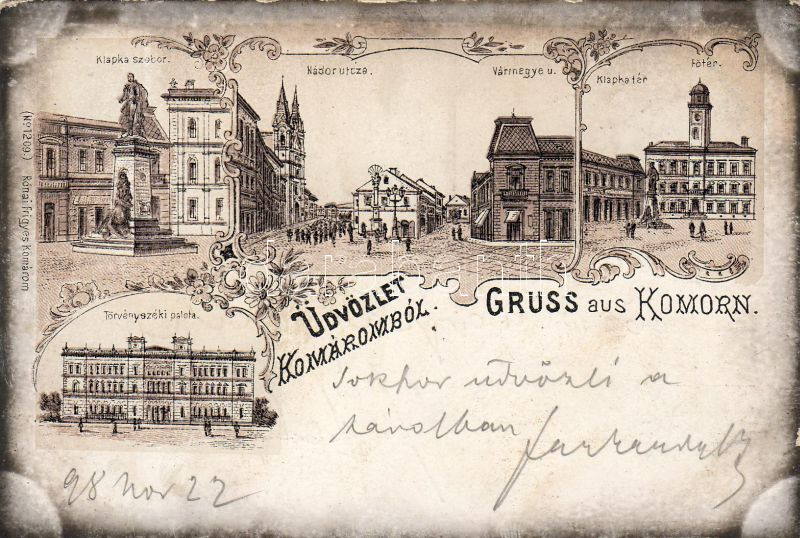 Klapka szobor.
Nádor utcza.
Vármegye u.
Klapka tér
Főtér.
(No 1209.) Rónai Frigyes Komárom
Törvényszéki palota.
ÜDVÖZLET
KOMÁROMBÓL.
GRUSS aus KOMORN.
Sokszor üdvözli a
távolban
98 Nov 22